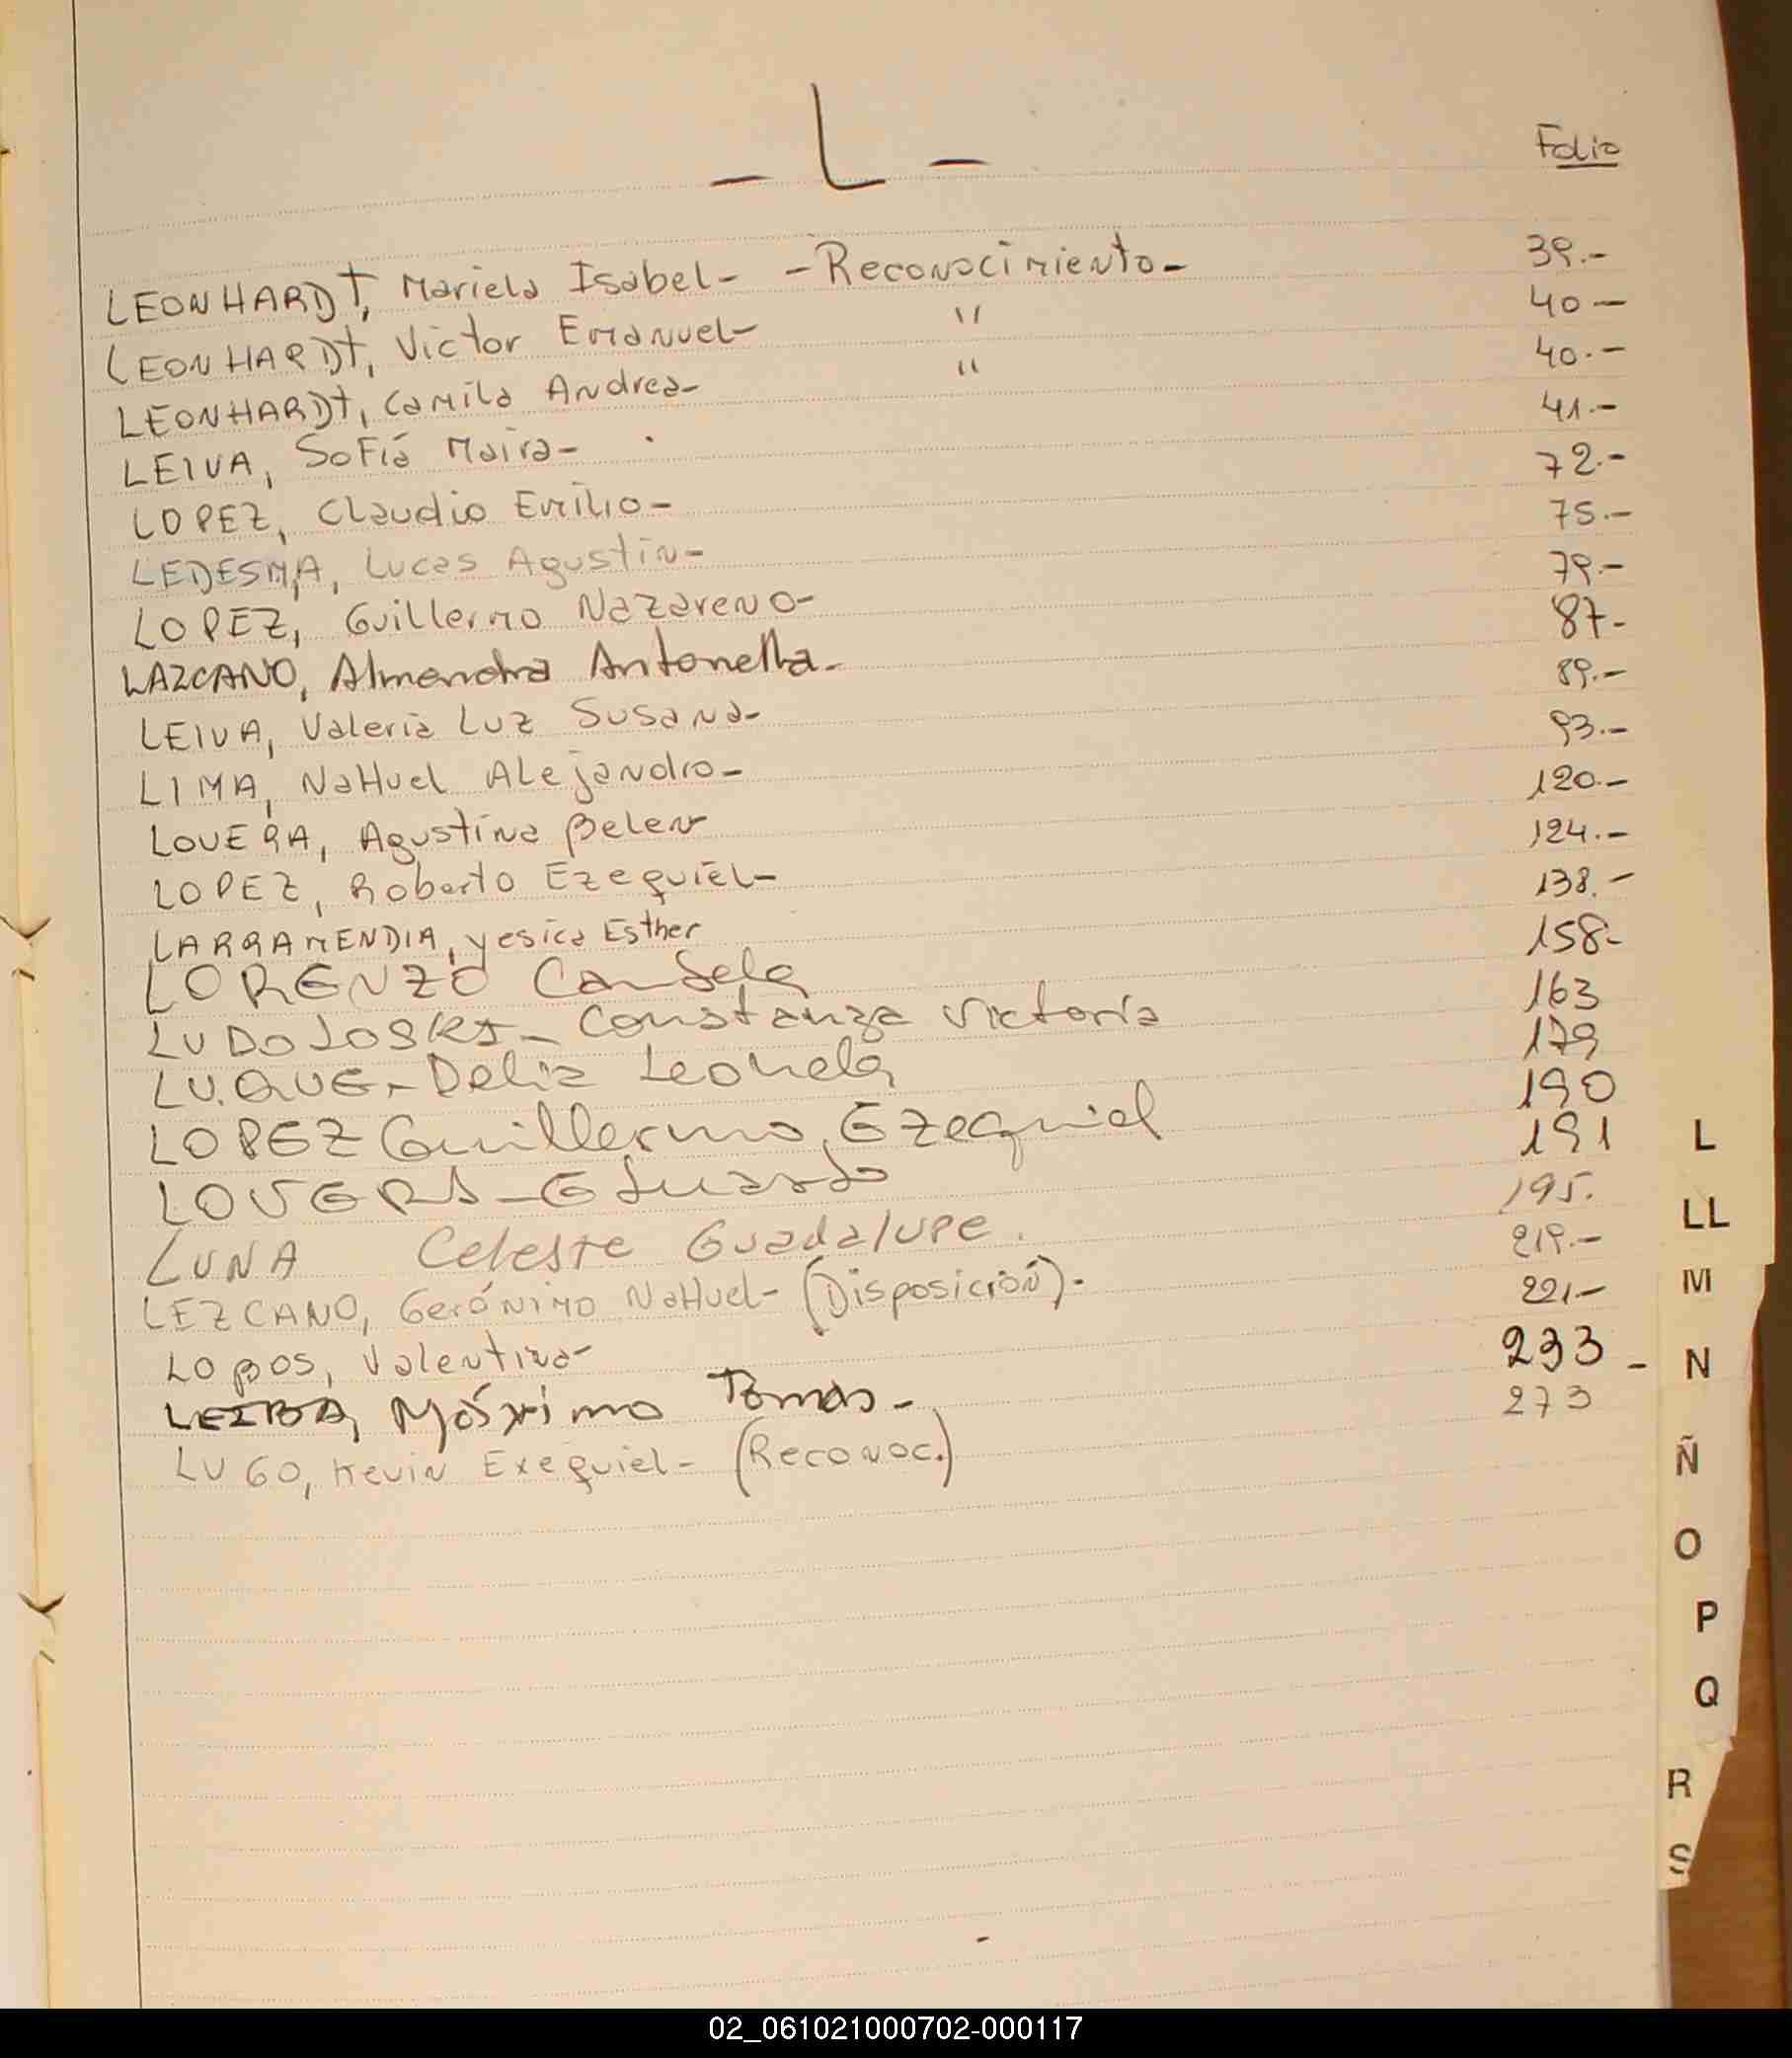 - L -
Folio
LEONHARDT, Mariela Isabel- -Reconocimiento- 39.-
LEONHARDT, Victor Emanuel- " 40-
LEONHARDT, Camila Andrea- " 40.-
LEIVA, Sofía Maira- 41.-
LOPEZ, Claudio Emilio- 72.-
LEDESMA, Lucas Agustin- 75.-
LOPEZ, Guillermo Nazareno- 79.-
LAZCANO, Almendra Antonella- 87-
LEIVA, Valeria Luz Susana- 89.-
LIMA, NaHuel ALejandro- 93.-
LOVERA, Agustina Belen 120.-
LOPEZ, Roberto Ezequiel- 124.-
LARRAMENDIA, yesica Esther 138.-
LORENZO Candela 158-
LUDOLOSKI- Constanza Victoria 163
LUQUE- Delia Leonela 179
LOPEZ Guillermo, Ezequiel 190
LOVERA- Eduardo 191
LUNA Celeste Guadalupe. 195.
LEZCANO, Gerónimo NaHuel- (Disposición).- 219.-
LOBOS, Valentina- 221-
LEIBA, Máximo Tomas-. 233-
LUGO, Kevin Exequiel- (Reconoc.) 273
L
LL
M
N
Ñ
O
P
Q
R
S
02_061021000702-000117